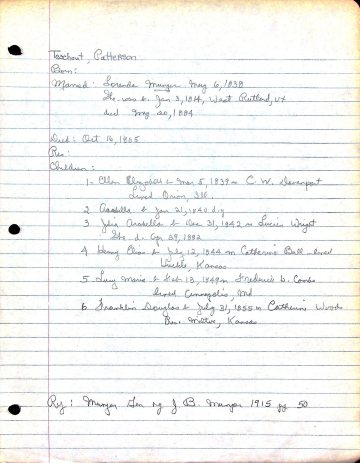 Teachout, Patterson
Born:
Married: Lorenda Munger May 6, 1838
She was b. Jan 3, 1814, West Rutland, Vt
died May 20, 1884
Died: Oct 16, 1865
Res:
Children:
1- Ellen Elizabeth b Mar 5, 1839 m C. W. Davenport
Lived Orion, Ill.
2 Arabella b Jan 21, 1840 d.y
3 Julia Arabella b Dec 31, 1842 m Lucius Wright
She d. Apr 29, 1882
4 Henry Elias b July 12, 1844 m Catherine Ball lived
Kansas
5 Lucy Maria b Feb 13, 1849 m Frederick D. Combs
lived Annapolis, Md
6 Franklin Douglas b July 31, 1855 m Catherine Woods
Res. Kansas
Ref: Munger Gen by J. B. Munger 1915 pg 50